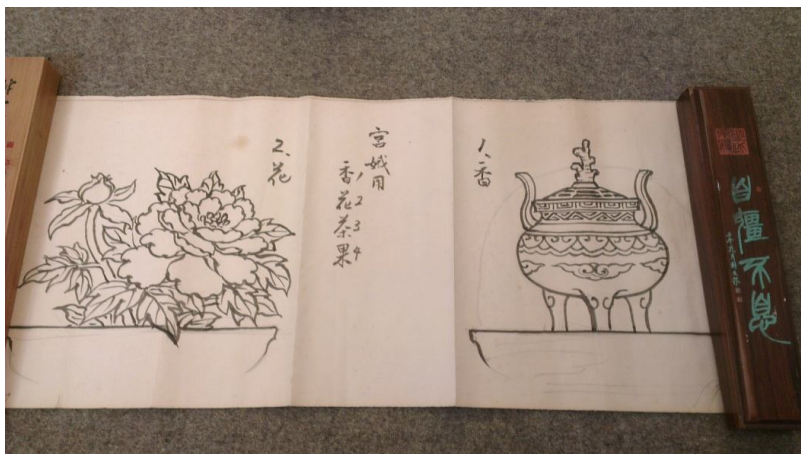 1、香
宫娥用
香1
花2
茶3
果4
2、花
自彊不息